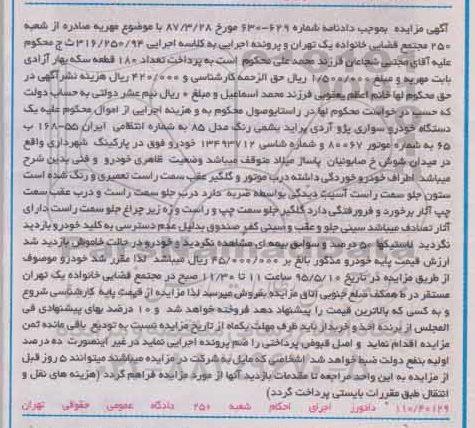 آگهی مزایده بموجب دادنامه شماره ۶۲۹-۶۳۰ مورخ ۸۷/۳/۲۸ با موضوع مهریه صادره از شعبه
۲۵۰ مجتمع قضایی خانواده یک تهران و پرونده اجرایی به کلاسه اجرایی ۳۱۶/۲۵۰/۹۴ ث ج محکوم
علیه آقای مجتبی شجاعان فرزند محمد علی محکوم است به پرداخت تعداد ۱۸۰ قطعه سکه بهار آزادی
بابت مهریه و مبلغ ۱/۵۰۰/۰۰۰ ریال حق الزحمه کارشناسی و ۴۲۰/۰۰۰ ریال هزینه نشرآگهی در
حق محکوم لها خانم اعظم یعقوبی فرزند محمد اسماعیل و مبلغ ۰ ریال نیم عشر دولتی به حساب دولت
که حسب درخواست محکوم لها در راستایوصول محکوم به و هزینه اجرایی از اموال محکوم علیه یک
دستگاه خودرو سواری پژو آردی پراید یشمی رنگ مدل ۸۵ به شماره انتظامی ایران ۵۵-۱۶۸ ب
۶۵ به شماره موتور ۸۰۰۶۷ و شماره شاسی ۱۳۴۹۳۷۱۲ خودرو فوق در پارکینگ شهرداری واقع
در میدان شوش خ صابونیان پاساژ میلاد متوقف میباشد وضعیت ظاهری خودرو و فنی بدین شرح
میباشد اطراف خودرو خوردگی داشته درب موتور و گلگیر عقب سمت راست تعمیری و رنگ شده است
ستون جلو سمت راست آسیب دیدگی بواسطه ضربه دارد درب جلو سمت راست و درب عقب سمت
چپ آثار برخورد و فرورفتگی دارد گلگیر جلو سمت چپ و راست و زه زیر چراغ جلو سمت راست دارای
آثار تصادف میباشد سینی جلو و عقب و سینی کفر صندوق بدلیل عدم دسترسی به کلید خودرو بازدید
نگردید لاستیکها ۵۰ درصد و سوابق بیمه ای مشاهده نگردید و خودرو در حالت خاموش بازدید شد
ارزش قیمت پایه خودرو مذکور بالغ بر ۴۵/۰۰۰/۰۰۰ ریال میباشد لذا مقرر شد خودرو موصوف
از طریق مزایده در تاریخ ۹۵/۵/۱۰ ساعت ۱۱ تا ۱۱/۳۰ صبح در مجتمع قضایی خانواده یک تهران
مستقر در ط همکف ضلع جنوبی اتاق مزایده بفروش میرسد لذا مزایده از قیمت پایه کارشناسی شروع
و به کسی که بالاترین قیمت را پیشنهاد دهد فروخته خواهد شد و ۱۰ درصد بهای پیشنهادی فی
المجلس از برنده اخذ و خریدار باید ظرف مهلت یکماه از تاریخ مزایده نسبت به تودیع باقی مانده ثمن
مزایده اقدام نماید و اصل قبوض پرداختی را ضم پرونده اجرایی نماید در غیر اینصورت ده درصد
اولیه بنفع دولت ضبط خواهد شد اشخاصی که مایل به شرکت در مزایده میباشند میتوانند ۵ روز قبل
از مزایده به این واحد مراجعه تا مقدمات بازدید آنها از مورد مزایده فراهم گردد (هزینه های نقل و
انتقال طبق مقررات بایستی پرداخت گردد)
۱۱۰/۴۰۱۲۹ دادورز اجرای احکام شعبه ۲۵۰ دادگاه عمومی حقوقی تهران